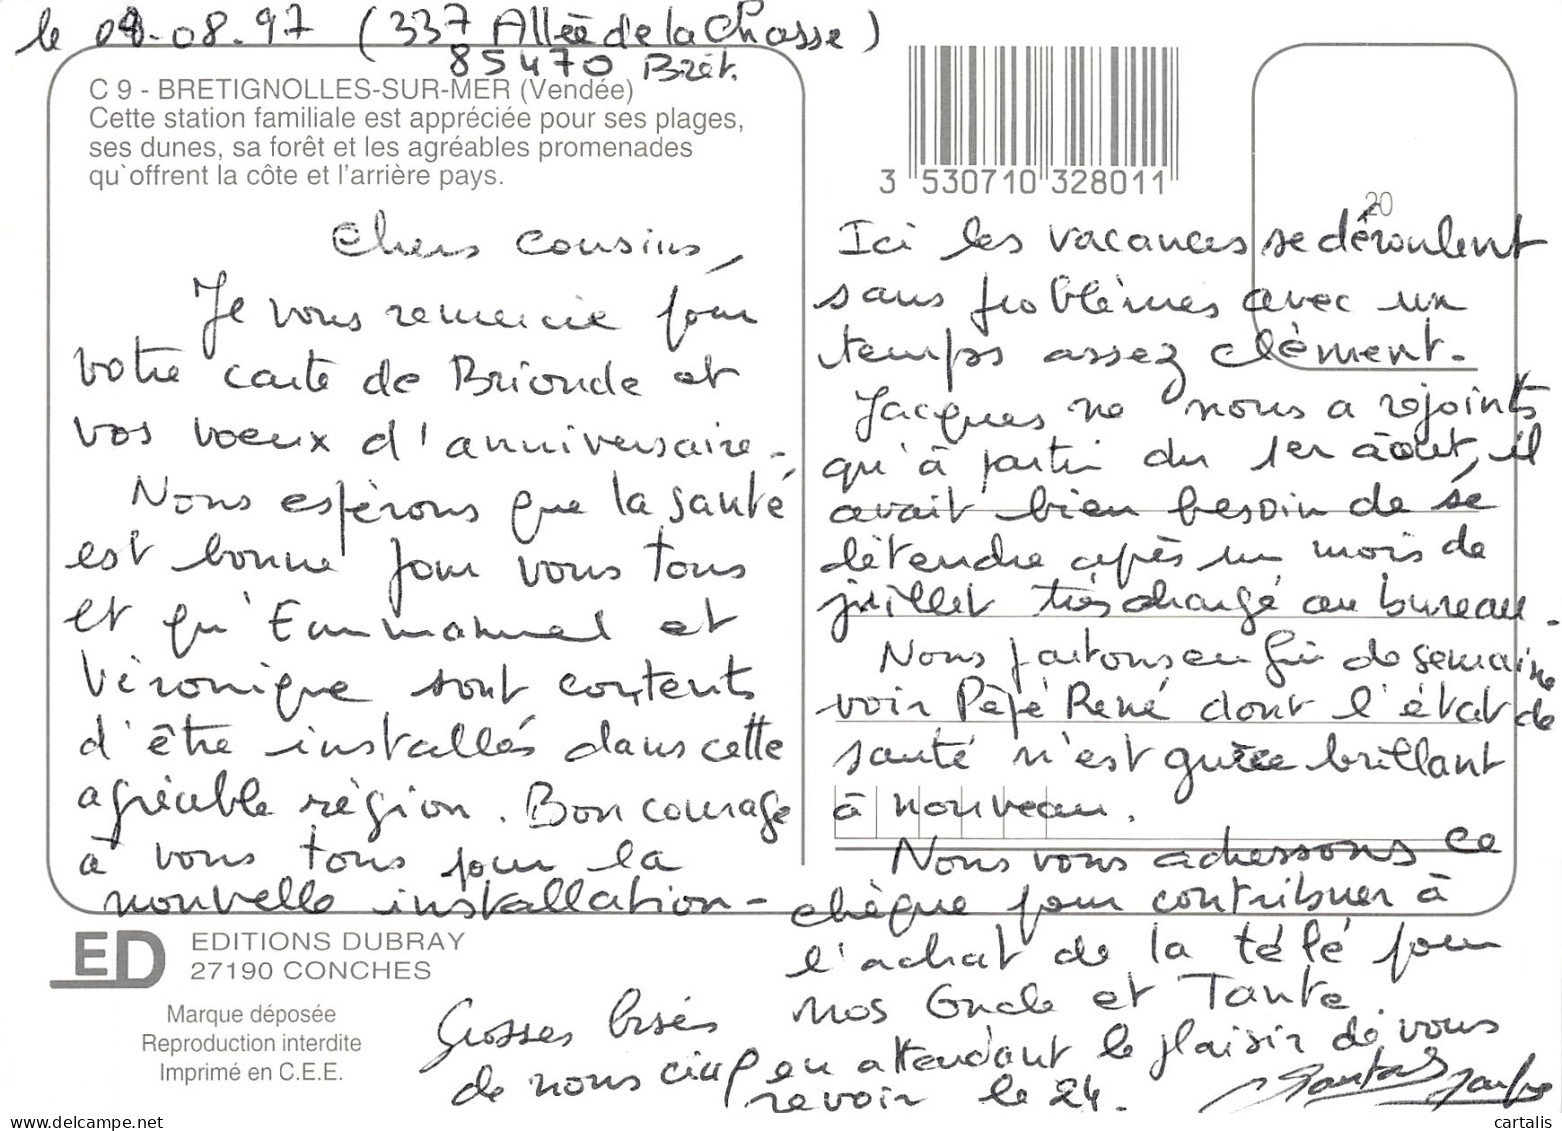 le 04-08-97 (337 Allée de la Chasse)
85470 Brét.
C 9 - BRETIGNOLLES-SUR-MER (Vendée)
Cette station familiale est appréciée pour ses plages,
ses dunes, sa forêt et les agréables promenades
qu`offrent la côte et l'arrière pays.
3 530710 328011
20
Chers cousins,
Je vous remercie pour
votre carte de Brionde et
vos voeux d'anniversaire -
Nous espérons que la santé
est bonne pour vous tous
et qu'Emmanuel et
Véronique sont contents
d'être installés dans cette
agréable région. Bon courage
à vous tous pour la
nouvelle installation -
Ici les vacances se déroulent
sans problèmes avec un
temps assez clément -
Jacques ne nous a rejoints
qu'à partir du 1er août, il
avait bien besoin de se
détendre après un mois de
juillet très chargé au bureau -
Nous partons en fin de semaine
voir Pépé René dont l'état de
santé n'est guère brillant
à nouveau.
Nous vous adressons ce
chèque pour contribuer à
l'achat de la télé pour
nos Oncle et Tante.
en attendant le plaisir de vous
revoir le 24.
Grosses bises
de nous cinq
ED EDITIONS DUBRAY
27190 CONCHES
Marque déposée
Reproduction interdite
Imprimé en C.E.E.
www.delcampe.net
cartalis